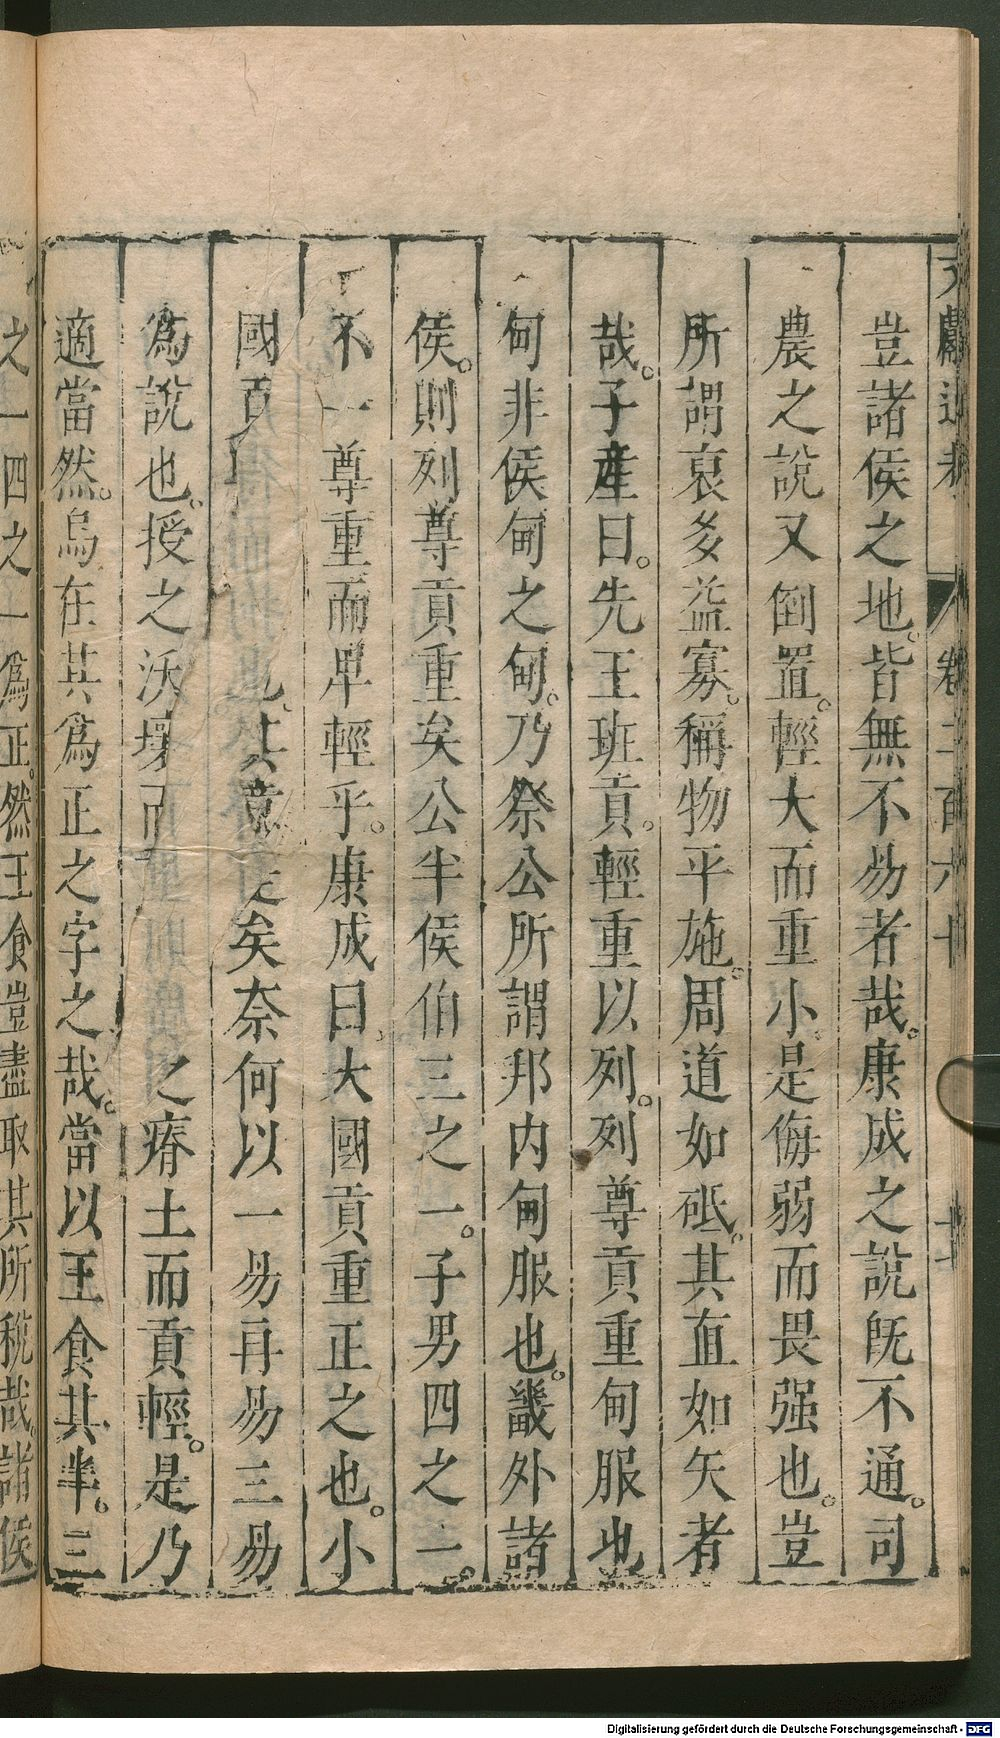 文獻通考 卷二百六十
豈諸侯之地。皆無不昜者哉。康成之說旣不通。司
農之說又倒置。輕大而重小。是侮弱而畏强也。豈
所謂裒多益寡。稱物平施。周道如砥。其直如矢者
哉。子産曰。先王班貢。輕重以列。列尊貢重甸服也
甸非侯甸之甸。乃祭公所謂邦内甸服也。畿外諸
侯。則列尊貢重矣公半侯伯三之一。子男四之一。
不一尊重而卑輕乎。康成曰。大國貢重正之也。小
國貢 也其意是矣奈何以一昜再昜三昜
爲說也。授之沃壤而 之瘠土而貢輕。是乃
適當然。烏在其爲正之字之哉。當以王食其半。三
之一四之一爲正。然王食豈盡取其所稅哉。諸侯
Digitalisierung gefördert durch die Deutsche Forschungsgemeinschaft - DFG